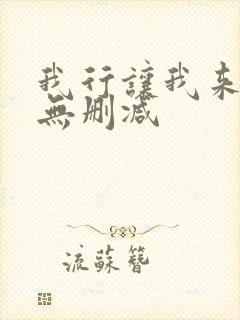 我行讓我来
無删减
流蘇簪